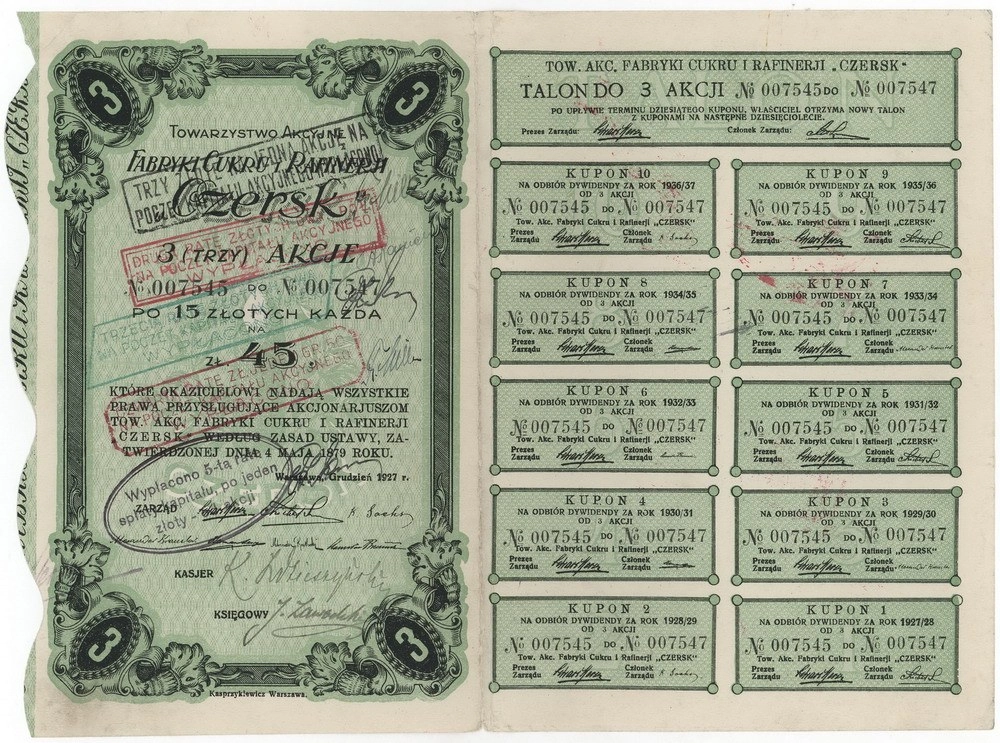 3 3
TOWARZYSTWO AKCYJNE
FABRYKI CUKRU I RAFINERJI
„Czersk”
3 (TRZY) AKCJE
№ 007545 DO № 007547
PO 15 ZŁOTYCH KAŻDA
NA
ZŁ. 45
KTÓRE OKAZICIELOWI NADAJĄ WSZYSTKIE
PRAWA PRZYSŁUGUJĄCE AKCJONARJUSZOM
TOW. AKC. FABRYKI CUKRU I RAFINERJI
„CZERSK” WEDŁUG ZASAD USTAWY, ZA-
TWIERDZONEJ DNIA 4 MAJA 1879 ROKU.
Warszawa, Grudzień 1927 r.
Wypłacono 5-tą ratę
spłaty kapitału, po jeden
złoty akcji
ZARZĄD
KASJER
KSIĘGOWY
3 3
Kasprzykiewicz Warszawa.
TOW. AKC. FABRYKI CUKRU I RAFINERJI „CZERSK”
TALON DO 3 AKCJI № 007545 DO № 007547
PO UPŁYWIE TERMINU DZIESIĄTEGO KUPONU, WŁAŚCICIEL OTRZYMA NOWY TALON
Z KUPONAMI NA NASTĘPNE DZIESIĘCIOLECIE.
Prezes Zarządu: Członek Zarządu:
KUPON 10
NA ODBIÓR DYWIDENDY ZA ROK 1936/37
OD 3 AKCJI
№ 007545 DO № 007547
Tow. Akc. Fabryki Cukru i Rafinerji „CZERSK”
Prezes Zarządu Członek Zarządu:
KUPON 9
NA ODBIÓR DYWIDENDY ZA ROK 1935/36
OD 3 AKCJI
№ 007545 DO № 007547
Tow. Akc. Fabryki Cukru i Rafinerji „CZERSK”
Prezes Zarządu Członek Zarządu:
KUPON 8
NA ODBIÓR DYWIDENDY ZA ROK 1934/35
OD 3 AKCJI
№ 007545 DO № 007547
Tow. Akc. Fabryki Cukru i Rafinerji „CZERSK”
Prezes Zarządu Członek Zarządu:
KUPON 7
NA ODBIÓR DYWIDENDY ZA ROK 1933/34
OD 3 AKCJI
№ 007545 DO № 007547
Tow. Akc. Fabryki Cukru i Rafinerji „CZERSK”
Prezes Zarządu Członek Zarządu:
KUPON 6
NA ODBIÓR DYWIDENDY ZA ROK 1932/33
OD 3 AKCJI
№ 007545 DO № 007547
Tow. Akc. Fabryki Cukru i Rafinerji „CZERSK”
Prezes Zarządu Członek Zarządu:
KUPON 5
NA ODBIÓR DYWIDENDY ZA ROK 1931/32
OD 3 AKCJI
№ 007545 DO № 007547
Tow. Akc. Fabryki Cukru i Rafinerji „CZERSK”
Prezes Zarządu Członek Zarządu:
KUPON 4
NA ODBIÓR DYWIDENDY ZA ROK 1930/31
OD 3 AKCJI
№ 007545 DO № 007547
Tow. Akc. Fabryki Cukru i Rafinerji „CZERSK”
Prezes Zarządu Członek Zarządu:
KUPON 3
NA ODBIÓR DYWIDENDY ZA ROK 1929/30
OD 3 AKCJI
№ 007545 DO № 007547
Tow. Akc. Fabryki Cukru i Rafinerji „CZERSK”
Prezes Zarządu Członek Zarządu:
KUPON 2
NA ODBIÓR DYWIDENDY ZA ROK 1928/29
OD 3 AKCJI
№ 007545 DO № 007547
Tow. Akc. Fabryki Cukru i Rafinerji „CZERSK”
Prezes Zarządu Członek Zarządu:
KUPON 1
NA ODBIÓR DYWIDENDY ZA ROK 1927/28
OD 3 AKCJI
№ 007545 DO № 007547
Tow. Akc. Fabryki Cukru i Rafinerji „CZERSK”
Prezes Zarządu Członek Zarządu: